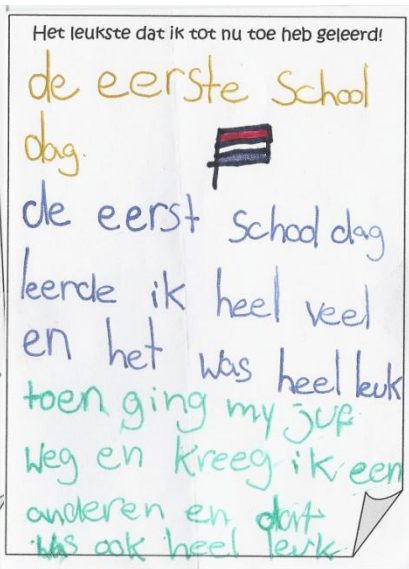 Het leukste dat ik tot nu toe heb geleerd!
de eerste School
dag.
de eerst School dag
leerde ik heel veel
en het was heel leuk
toen ging my juf
weg en kreeg ik een
anderen en dat
was ook heel leuk